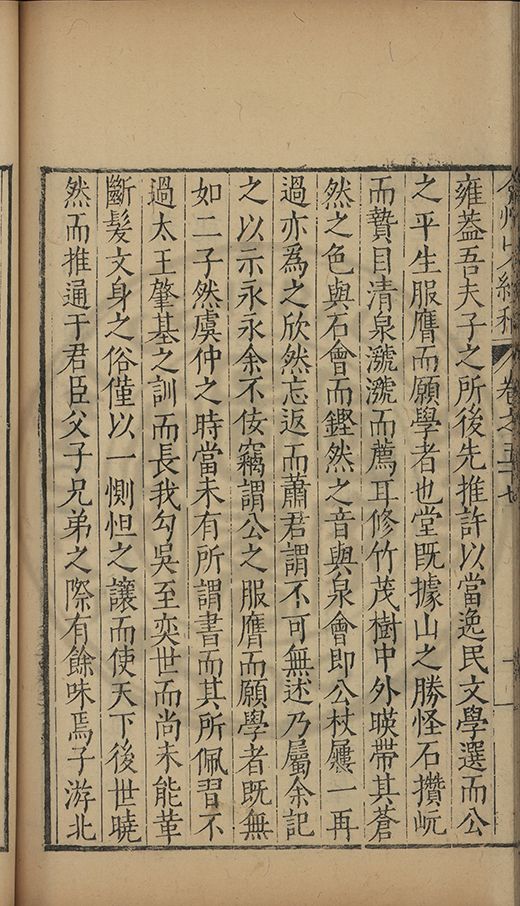 雍葢吾夫子之所後先推許以當逸民文學選而公
之平生服膺而願學者也堂既據山之勝怪石攢岏
而贄目清泉㶁㶁而薦耳修竹茂樹中外暎帶其蒼
然之色與石會而鏗然之音與泉會即公杖屨一再
過亦爲之欣然忘返而蕭君謂不可無述乃屬余記
之以示永永余不佞竊謂公之服膺而願學者既無
如二子然虞仲之時當未有所謂書而其所佩習不
過太王肇基之訓而長我勾吳至奕世而尚未能革
斷髮文身之俗僅以一惻怛之讓而使天下後世曉
然而推通于君臣父子兄弟之際有餘味焉子游北